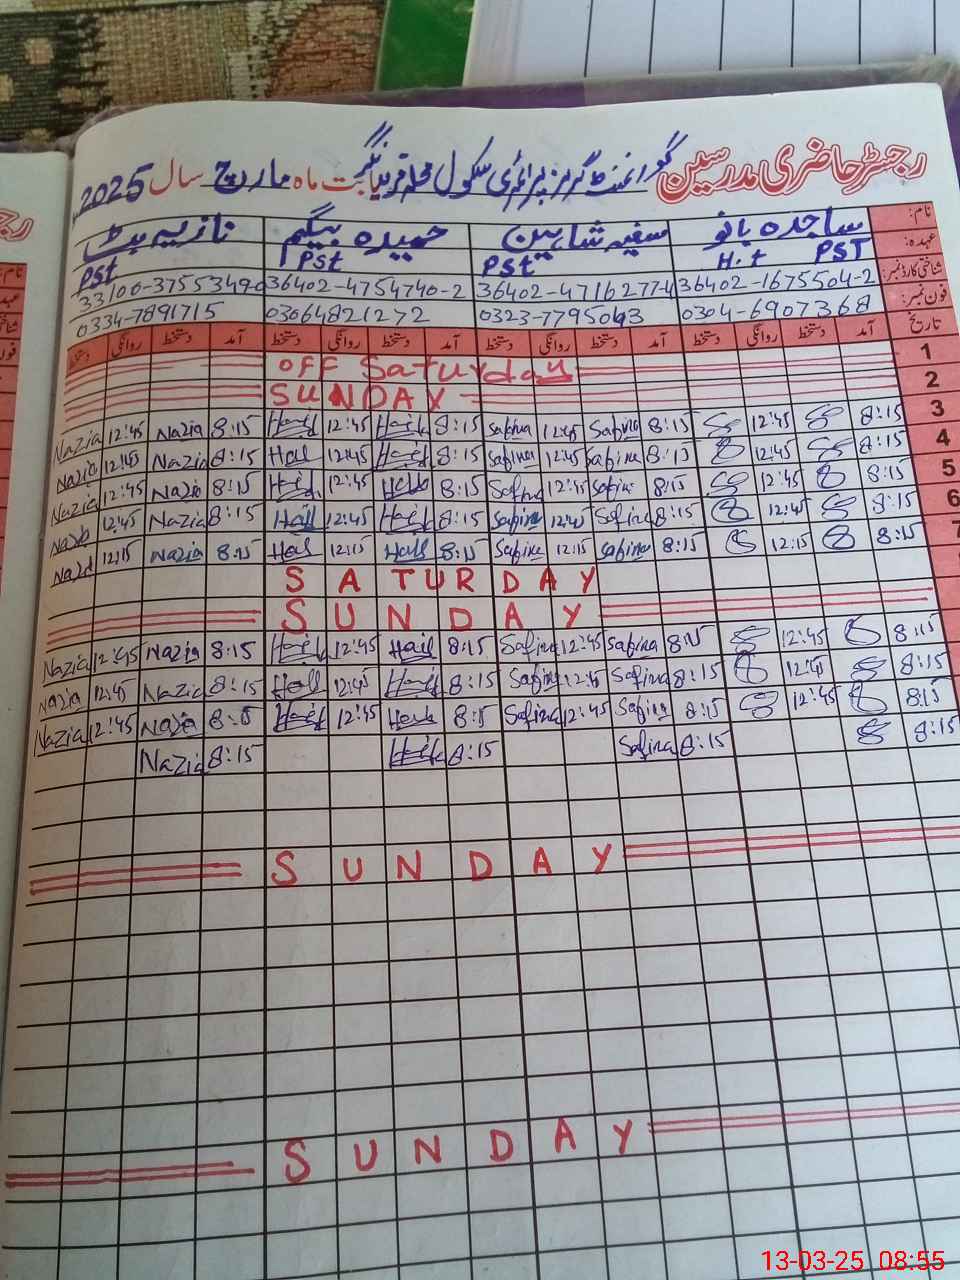 رجسٹر حاضری مدرسین گورنمنٹ گرلز پرائمری سکول محلہ بابت ماہ مارچ سال 2025
نام: ساجدہ بانو سفیہ شاہین حمیدہ بیگم نازیہ بٹ
عہدہ: PST H.t PSt PSt PSt
شناختی کارڈ نمبر: 36402-1675504-2 36402-4716277-4 36402-4754740-2 33100-3755349-0
فون نمبر: 0304-6907368 0323-7795043 03064821272 0334-7891715
تاریخ آمد دستخط روانگی دستخط آمد دستخط روانگی دستخط آمد دستخط روانگی دستخط آمد دستخط روانگی دستخط
OFF Saturday 1
SUNDAY 2
Nazia 12:45 Nazia 8:15 12:45 8:15 Safina 12:45 Safina 8:15 12:45 8:15 3
Nazia 12:45 Nazia 8:15 12:45 8:15 Safina 12:45 Safina 8:15 12:45 8:15 4
Nazia 12:45 Nazia 8:15 12:45 8:15 Safina 12:45 Safina 8:15 12:45 8:15 5
12:45 Nazia 8:15 12:45 8:15 Safina 12:45 Safina 8:15 12:45 8:15 6
12:15 Nazia 8:15 12:15 8:15 Safina 12:15 Safina 8:15 12:15 8:15 7
SATURDAY
SUNDAY
Nazia 12:45 Nazia 8:15 12:45 8:15 Safina 12:45 Safina 8:15 12:45 8:15
Nazia 12:45 Nazia 8:15 12:45 8:15 Safina 12:45 Safina 8:15 12:45 8:15
Nazia 12:45 Nazia 8:15 12:45 8:15 Safina 12:45 Safina 8:15 12:45 8:15
Nazia 8:15 8:15 Safina 8:15 8:15
SUNDAY
SUNDAY
13-03-25 08:55